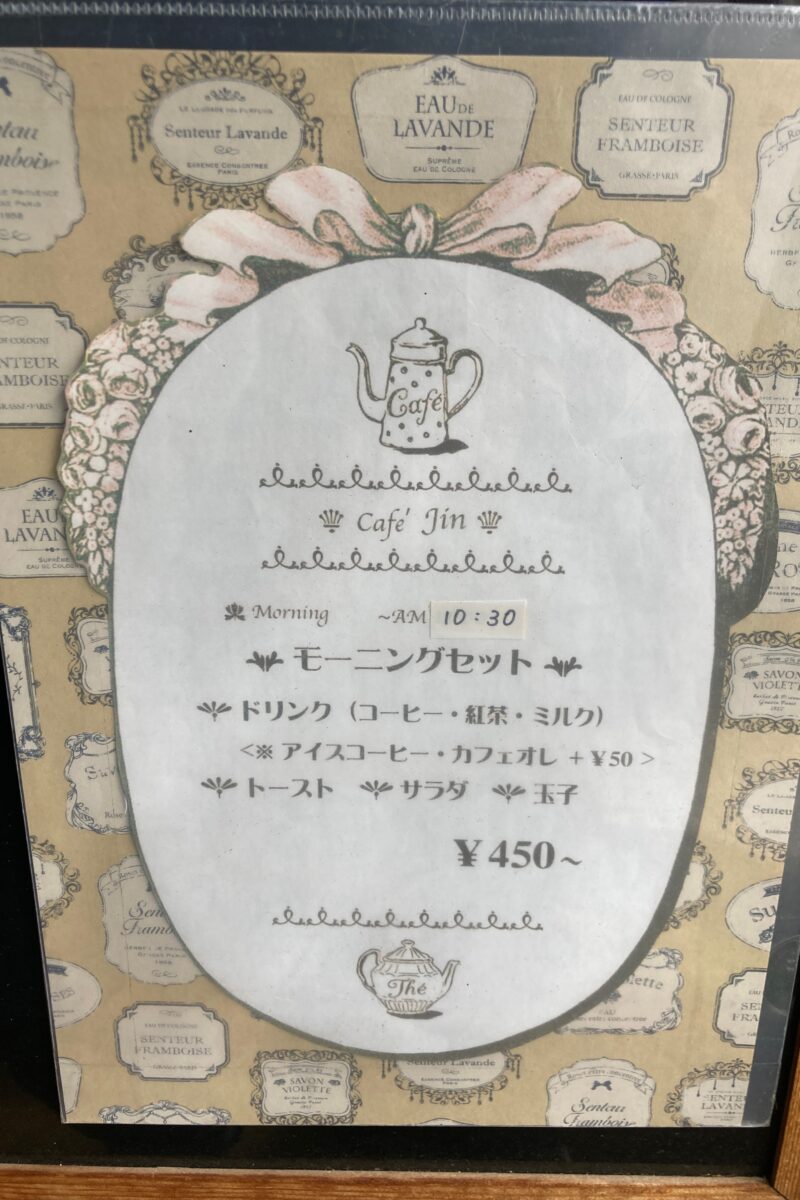 Senteur Lavande
ESSENCE CONCENTREE
PARIS
EAU DE
LAVANDE
SUPRÊME
EAU DE COLOGNE
EAU DE COLOGNE
SENTEUR
FRAMBOISE
GRASSE·PARIS
Café
Café Jin
Morning ~AM 10:30
モーニングセット
ドリンク（コーヒー・紅茶・ミルク）
<※ アイスコーヒー・カフェオレ +¥50 >
トースト サラダ 玉子
¥450~
Thé
EAU DE COLOGNE
SENTEUR
FRAMBOISE
GRASSE·PARIS
SAVON
VIOLETTE